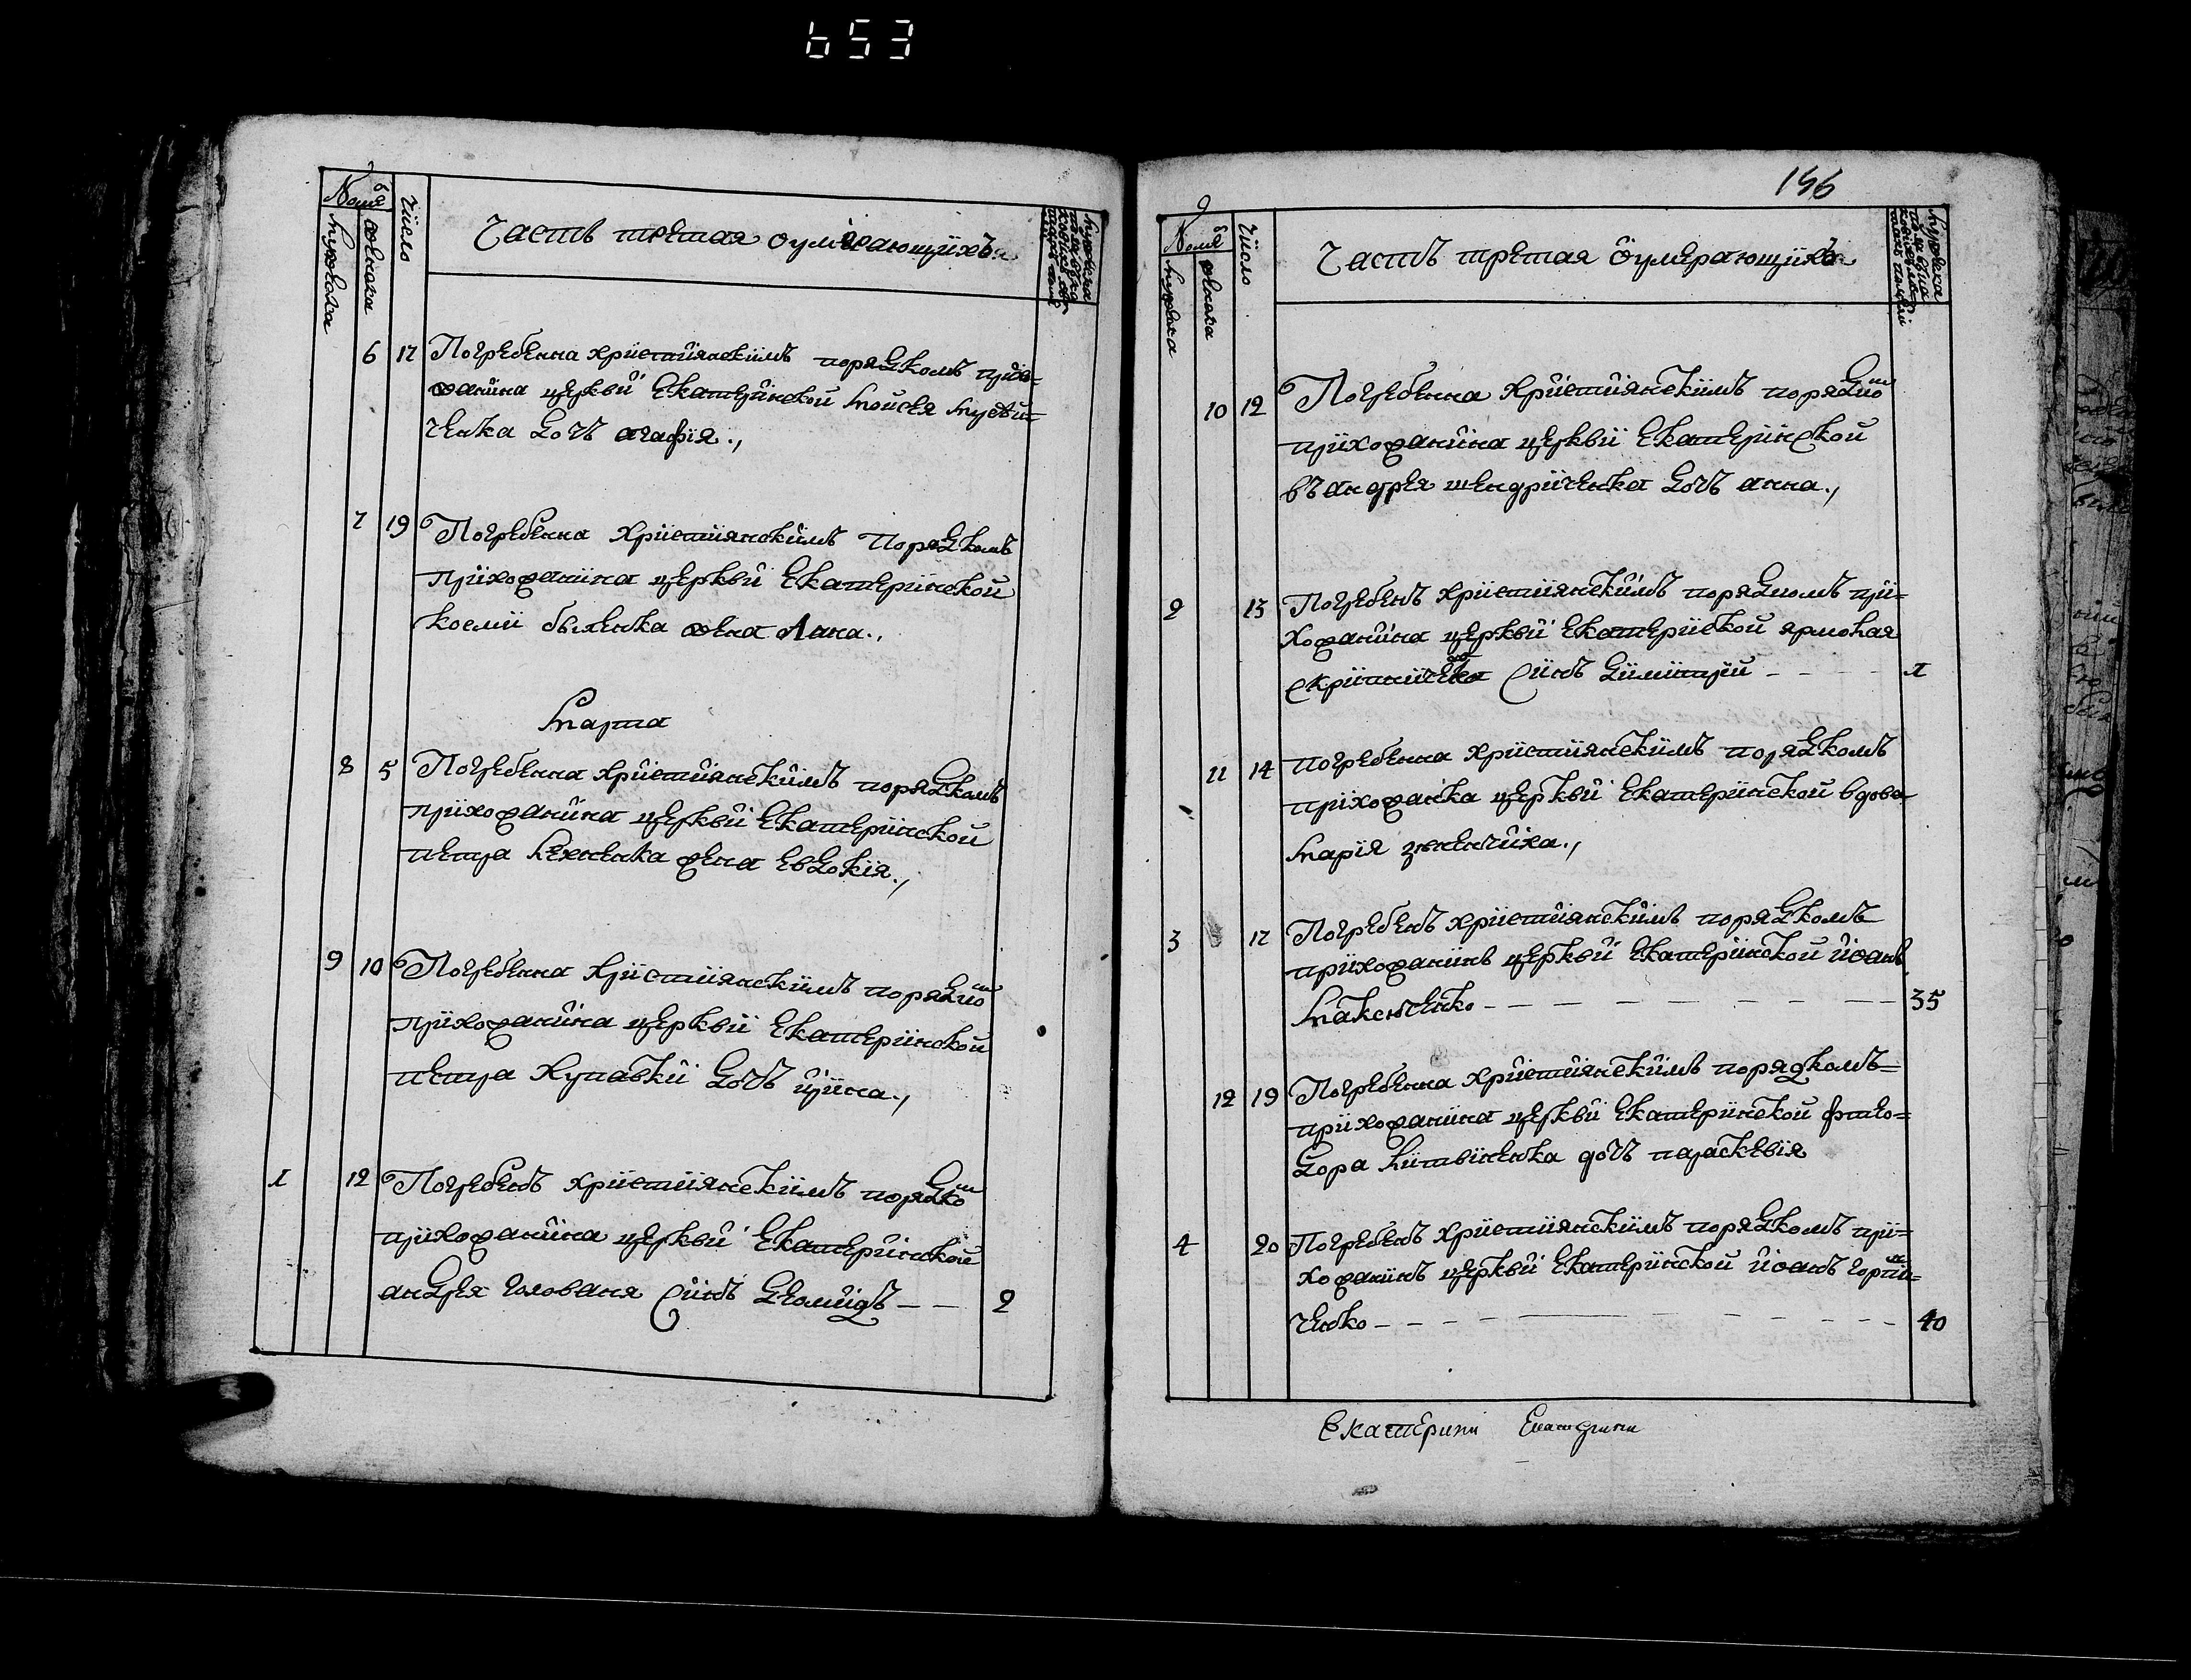 653
Часть третая оумерающихъ
Число
женска
мужска
6 17 Погребенна християнскимъ порядкомъ прихо=
жанина церкви Екатеринской Моисея
ченка дочъ агафия.,
7 19 Погребенна християнскимъ порядкомъ
прихожанина церкви Екатеринской
козми жена Анна.,
Марта
8 5 Погребенна християнскимъ порядкомъ
прихожанина церкви Екатеринской
петра жена Евдокия.,
9 10 Погребенна християнскимъ порядко м
прихожанина церкви Екатеринской
петра Хупавки дочъ ирина.,
1 12 Погребенъ християнскимъ порядко м
прихожанина церкви Екатеринской
андрея голованя синъ Деомидъ — — 2
156
9
Часть третая оумерающихъ
Число
женска
мужска
10 12 Погребенна християнскимъ порядко м
прихожанина церкви Екатеринской
андрея шендриченка дочъ анна.,
2 13 Погребенъ християнскимъ порядкомъ при=
хожанина церкви Екатериской ярмолая
синъ Димитрий — — — 1
11 14 погребенна християнскимъ порядкомъ
прихожанка церкви Екатеринской вдова
Мария
3 17 Погребенъ християнскимъ порядкомъ
прихожанинъ церкви Екатеринской иоанъ
Максюченко — — — — — — — — 35
12 19 Погребенна християнскимъ порядкомъ=
прихожанина церкви Екатеринской фтео=
дора Литвиненка дочъ параскевия
4 20 Погребенъ християнскимъ порядкомъ при=
хожанинъ церкви Екатеринской иоанъ
ченко — — — — — — — — 40
Екатерини Екатерини